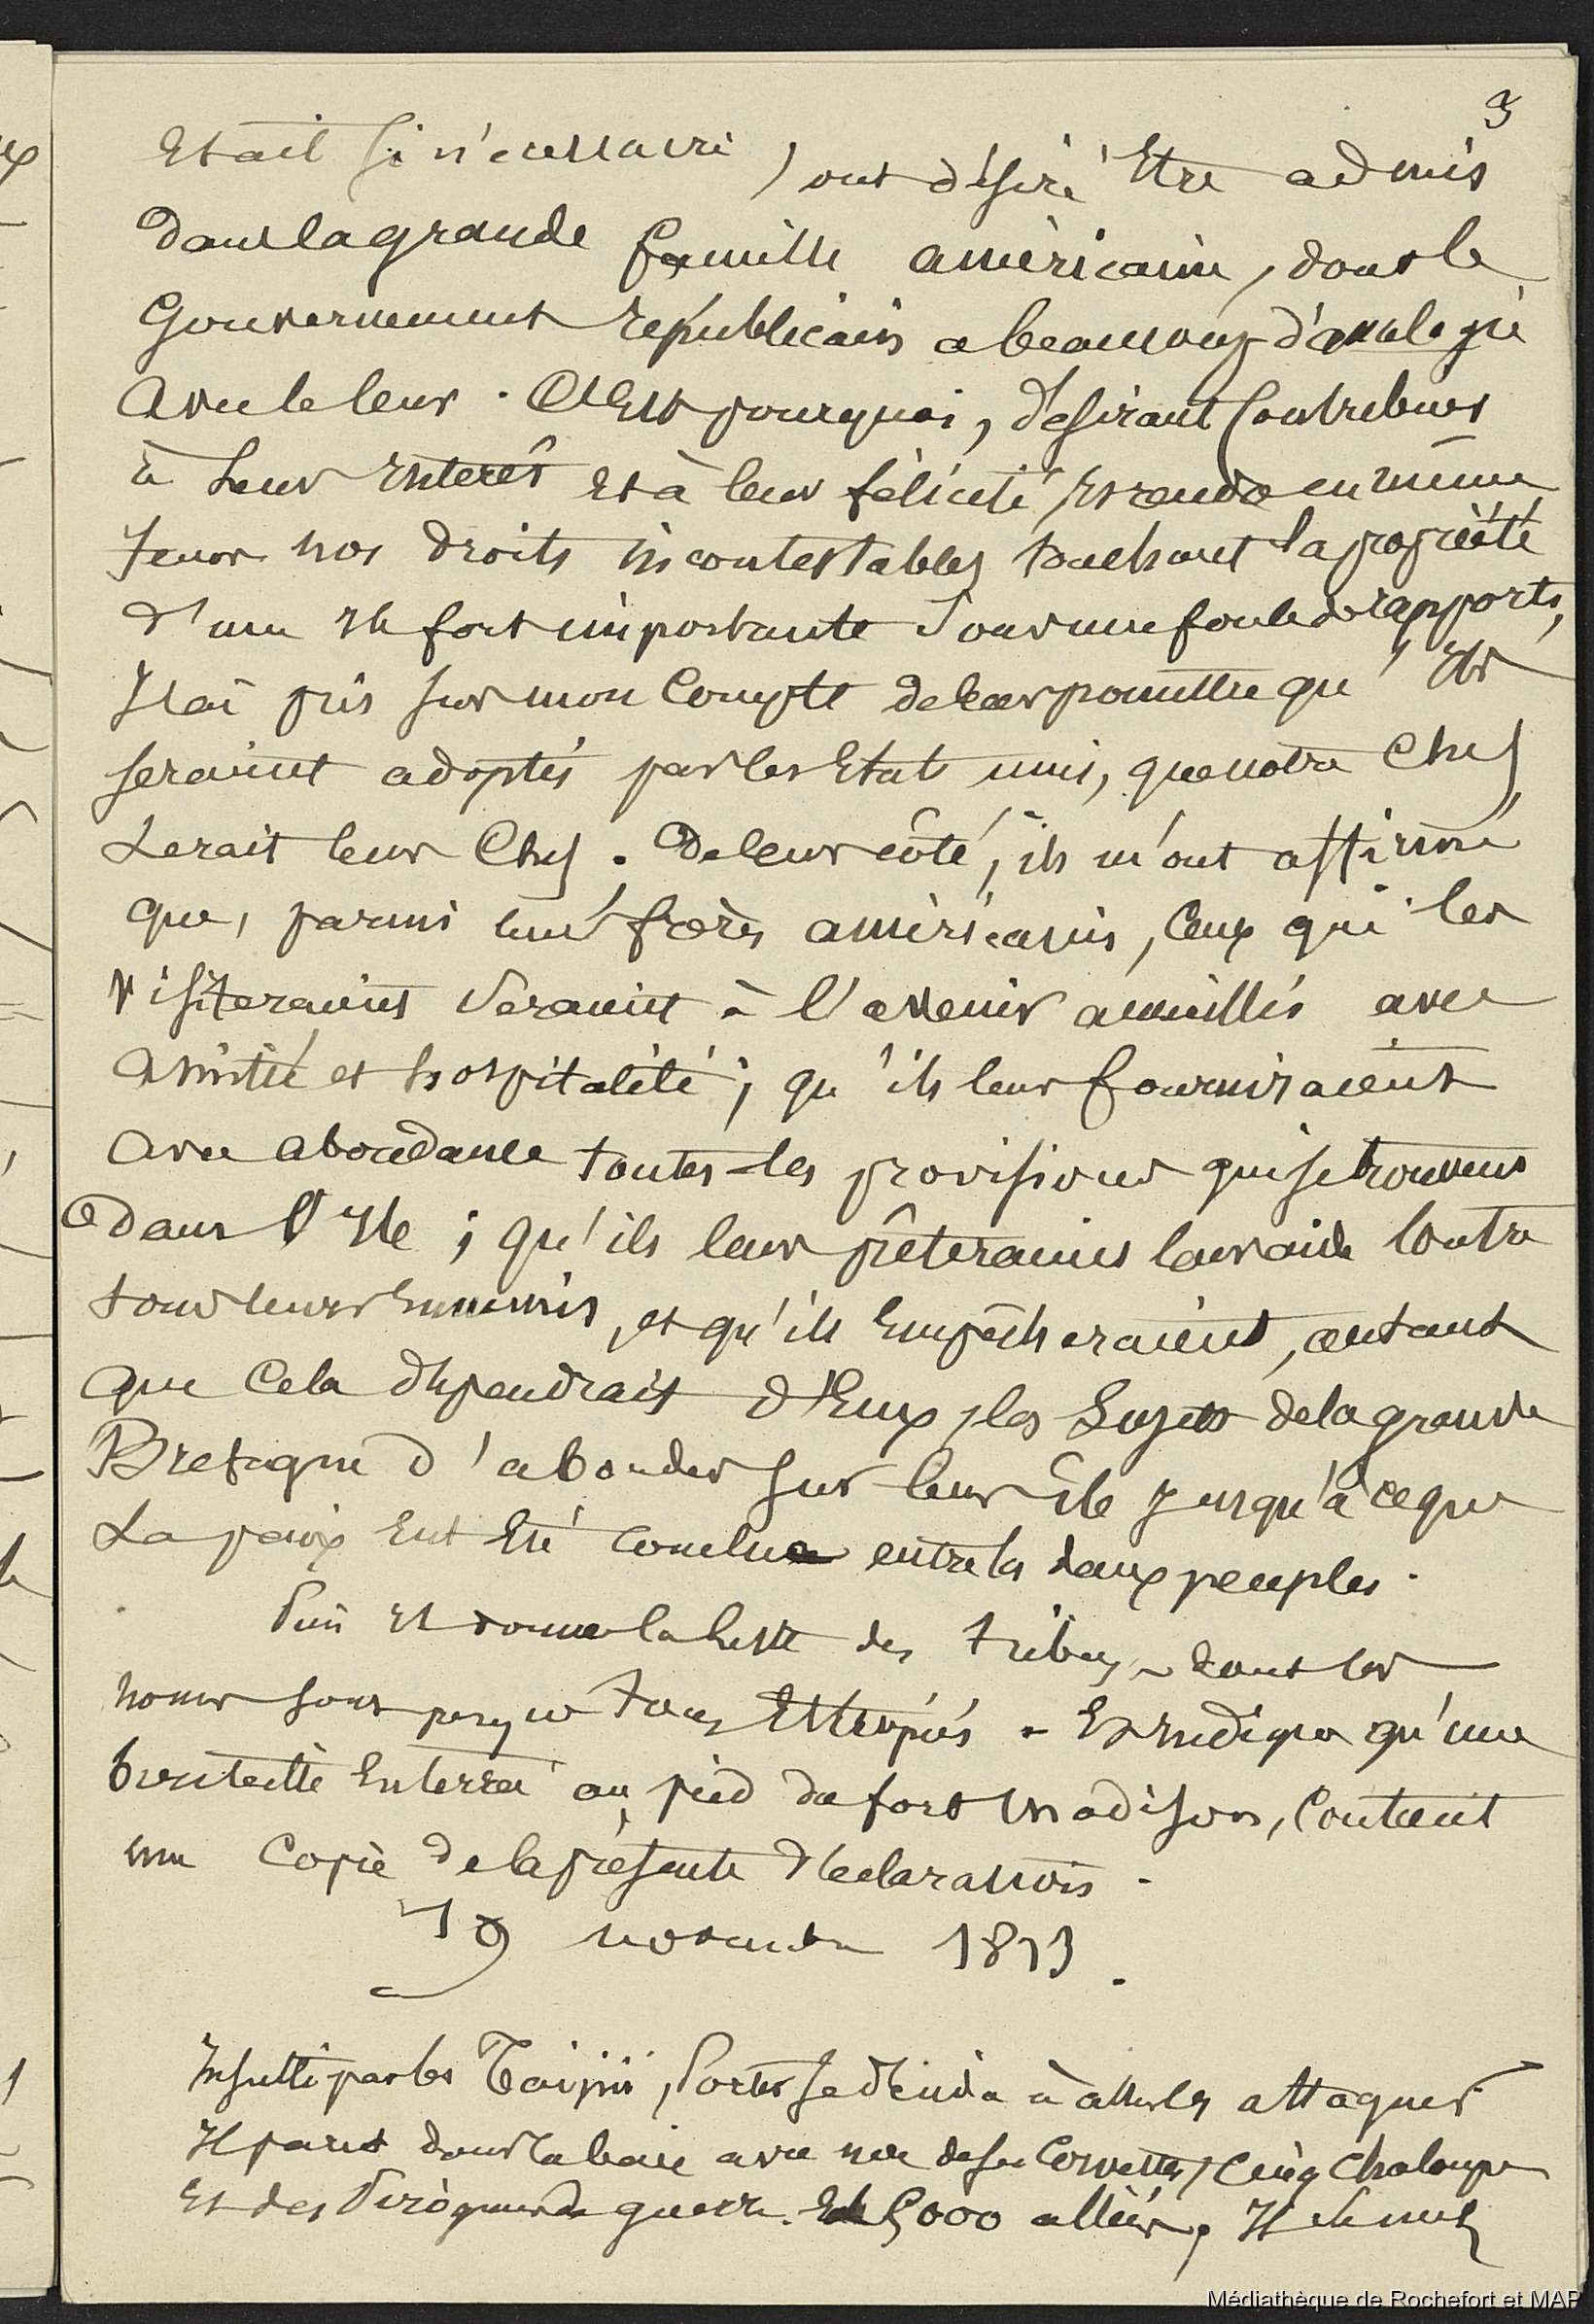 3
Etait si nécessaire, ont désiré être admis
Dans la grande famille américaine, dont le
Gouvernement républicain a beaucoup d'analogie
Avec le leur. C'est pourquoi, désirant contribuer
à leur interêt et à leur félicité, et rendre en même
Temps nos droits incontestables touchant la propriété
d'une Ile fort importante sous une foule de rapports,
J'ai pris sur mon compte de leur promettre qu'ils
seraient adoptés par les Etats unis, que notre Chef
serait leur Chef. De leur côté, ils m'ont affirmé
que, parmi leurs frères américains, ceux qui les
visiteraient seraient à l'avenir accueillis avec
Amitié et hospitalité; qu'ils leur fourniraient
Avec abondance toutes les provisions qui se trouvent
Dans l'Ile; qu'ils leur prêteraient leur aide contre
tous leurs ennemis, et qu'ils empêcheraient, autant
que cela dépendrait d'Eux, les Sujets de la grande
Bretagne d'aborder sur leur île jusqu'à ce que
La paix eut été conclue entre les deux peuples.
Puis il donne la liste des tribus, dont les
noms sont presque tous estropiés. Et indique qu'une
bouteille enterrée au pied du fort Madison, contient
une copie de la présente déclaration.
19 novembre 1813.
Insulté par les Taïpii, Porter se décida à aller les attaquer
Il parut dans la baie avec une de ses corvettes, cinq chaloupes
Et des Pirogues de guerre. Et 5000 alliés, Il